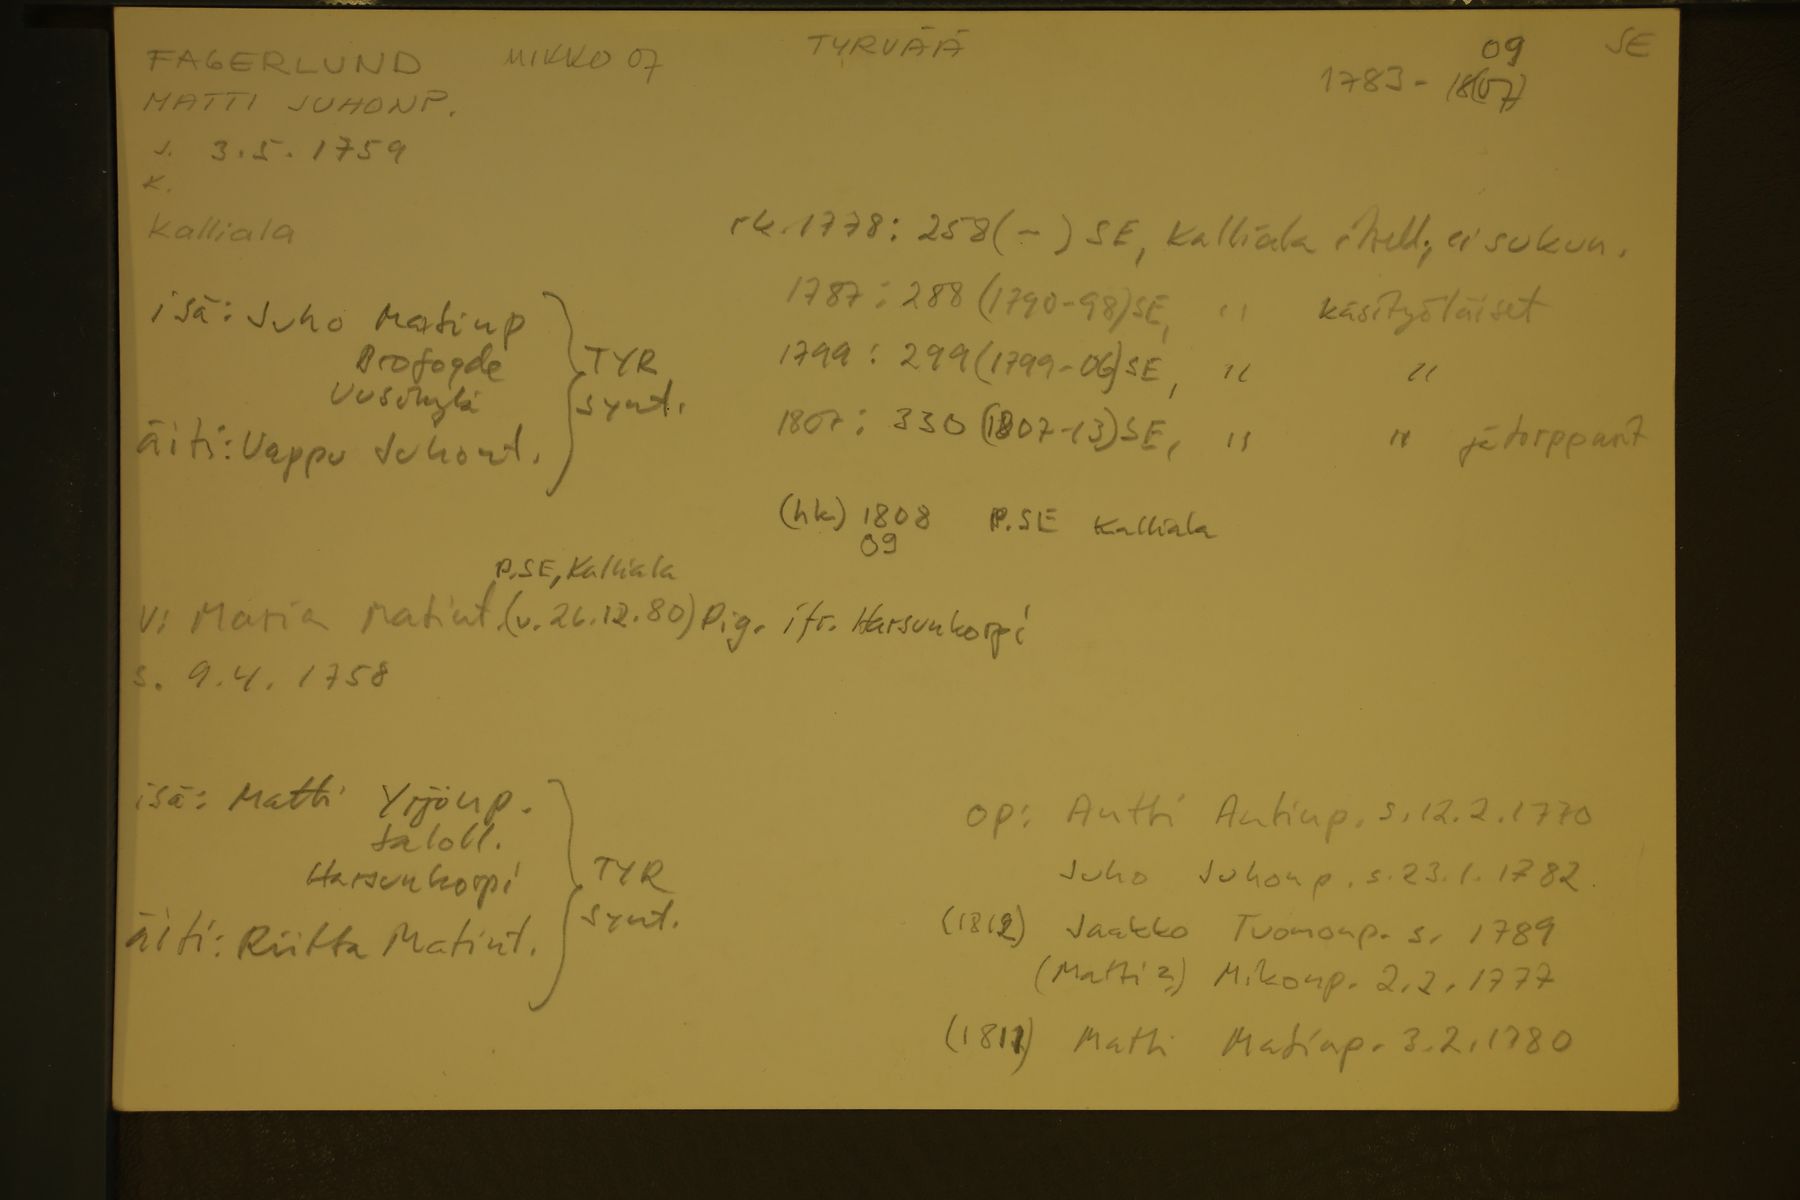 FAGERLUND MIKKO 07 TYRVÄÄ 09 SE
MATTI JUHONP. 1783- 18(07)
s. 3.5.1759
k.
Kalliala
rk. 1778: 258(-) SE, Kalliala itsell; ei sukun.
1787: 288 (1790-98) SE, " käsityöläiset
1799: 299 (1799-06) SE, " "
1807: 330 (1807-13) SE, " " ja torpparit
(hk) 1808 P.SE Kalliala
09
isä: Juho Matinp
Brofogde
Uusikylä
äiti: Vappu Juhont.
TYR
synt.
P.SE, Kalliala
v: Maria Matint. (v. 26.12.80) Pig. ifr. Harsunkorpi
s. 9.4.1758
isä: Matti Yrjönp.
taloll.
Harsunkorpi
äiti: Riitta Matint.
TYR
synt.
op: Antti Antinp. s. 12.2.1770
Juho Juhonp. s. 23.1.1782.
(1812) Jaakko Tuomonp. s. 1789
(Matti?) Mikonp. 2.2.1777
(1811) Matti Matinp. 3.2.1780